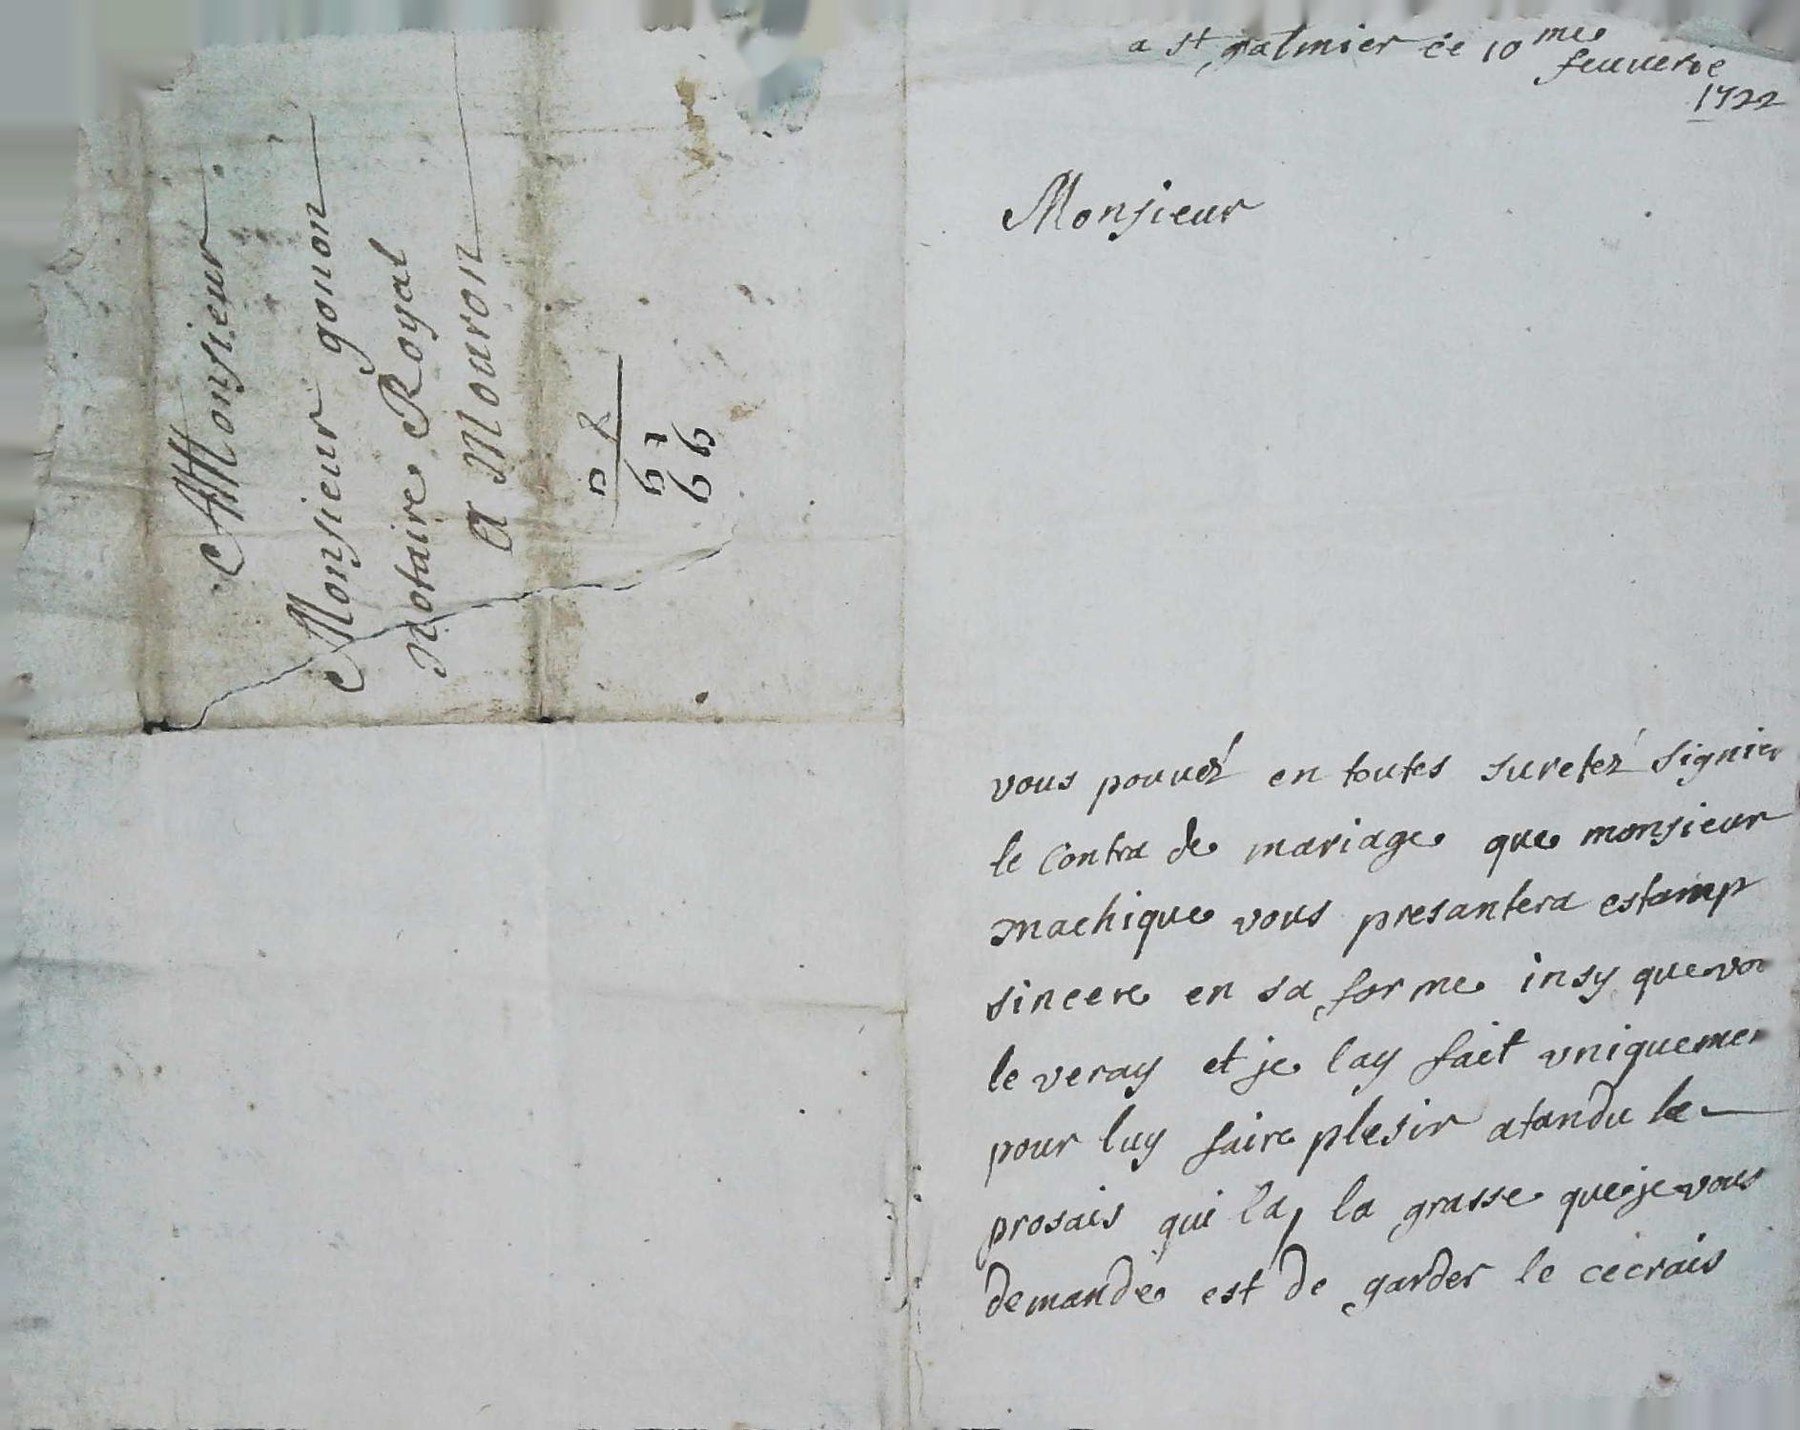 Monsieur
Monsieur gonon
notaire Royal
a Mouron
a st galmier ce 10me
feuuerie
1722
Monsieur
vous pouuéz en toutes suretéz signier
le Contra de mariage que monsieur
machique vous presantera estamp
sincere en sa forme insy que vou
le veray et je lay fait vniquemen
pour luy faire plesir atandu le
prosais qui la, la grasse que je vous
demande est de garder le cecrais